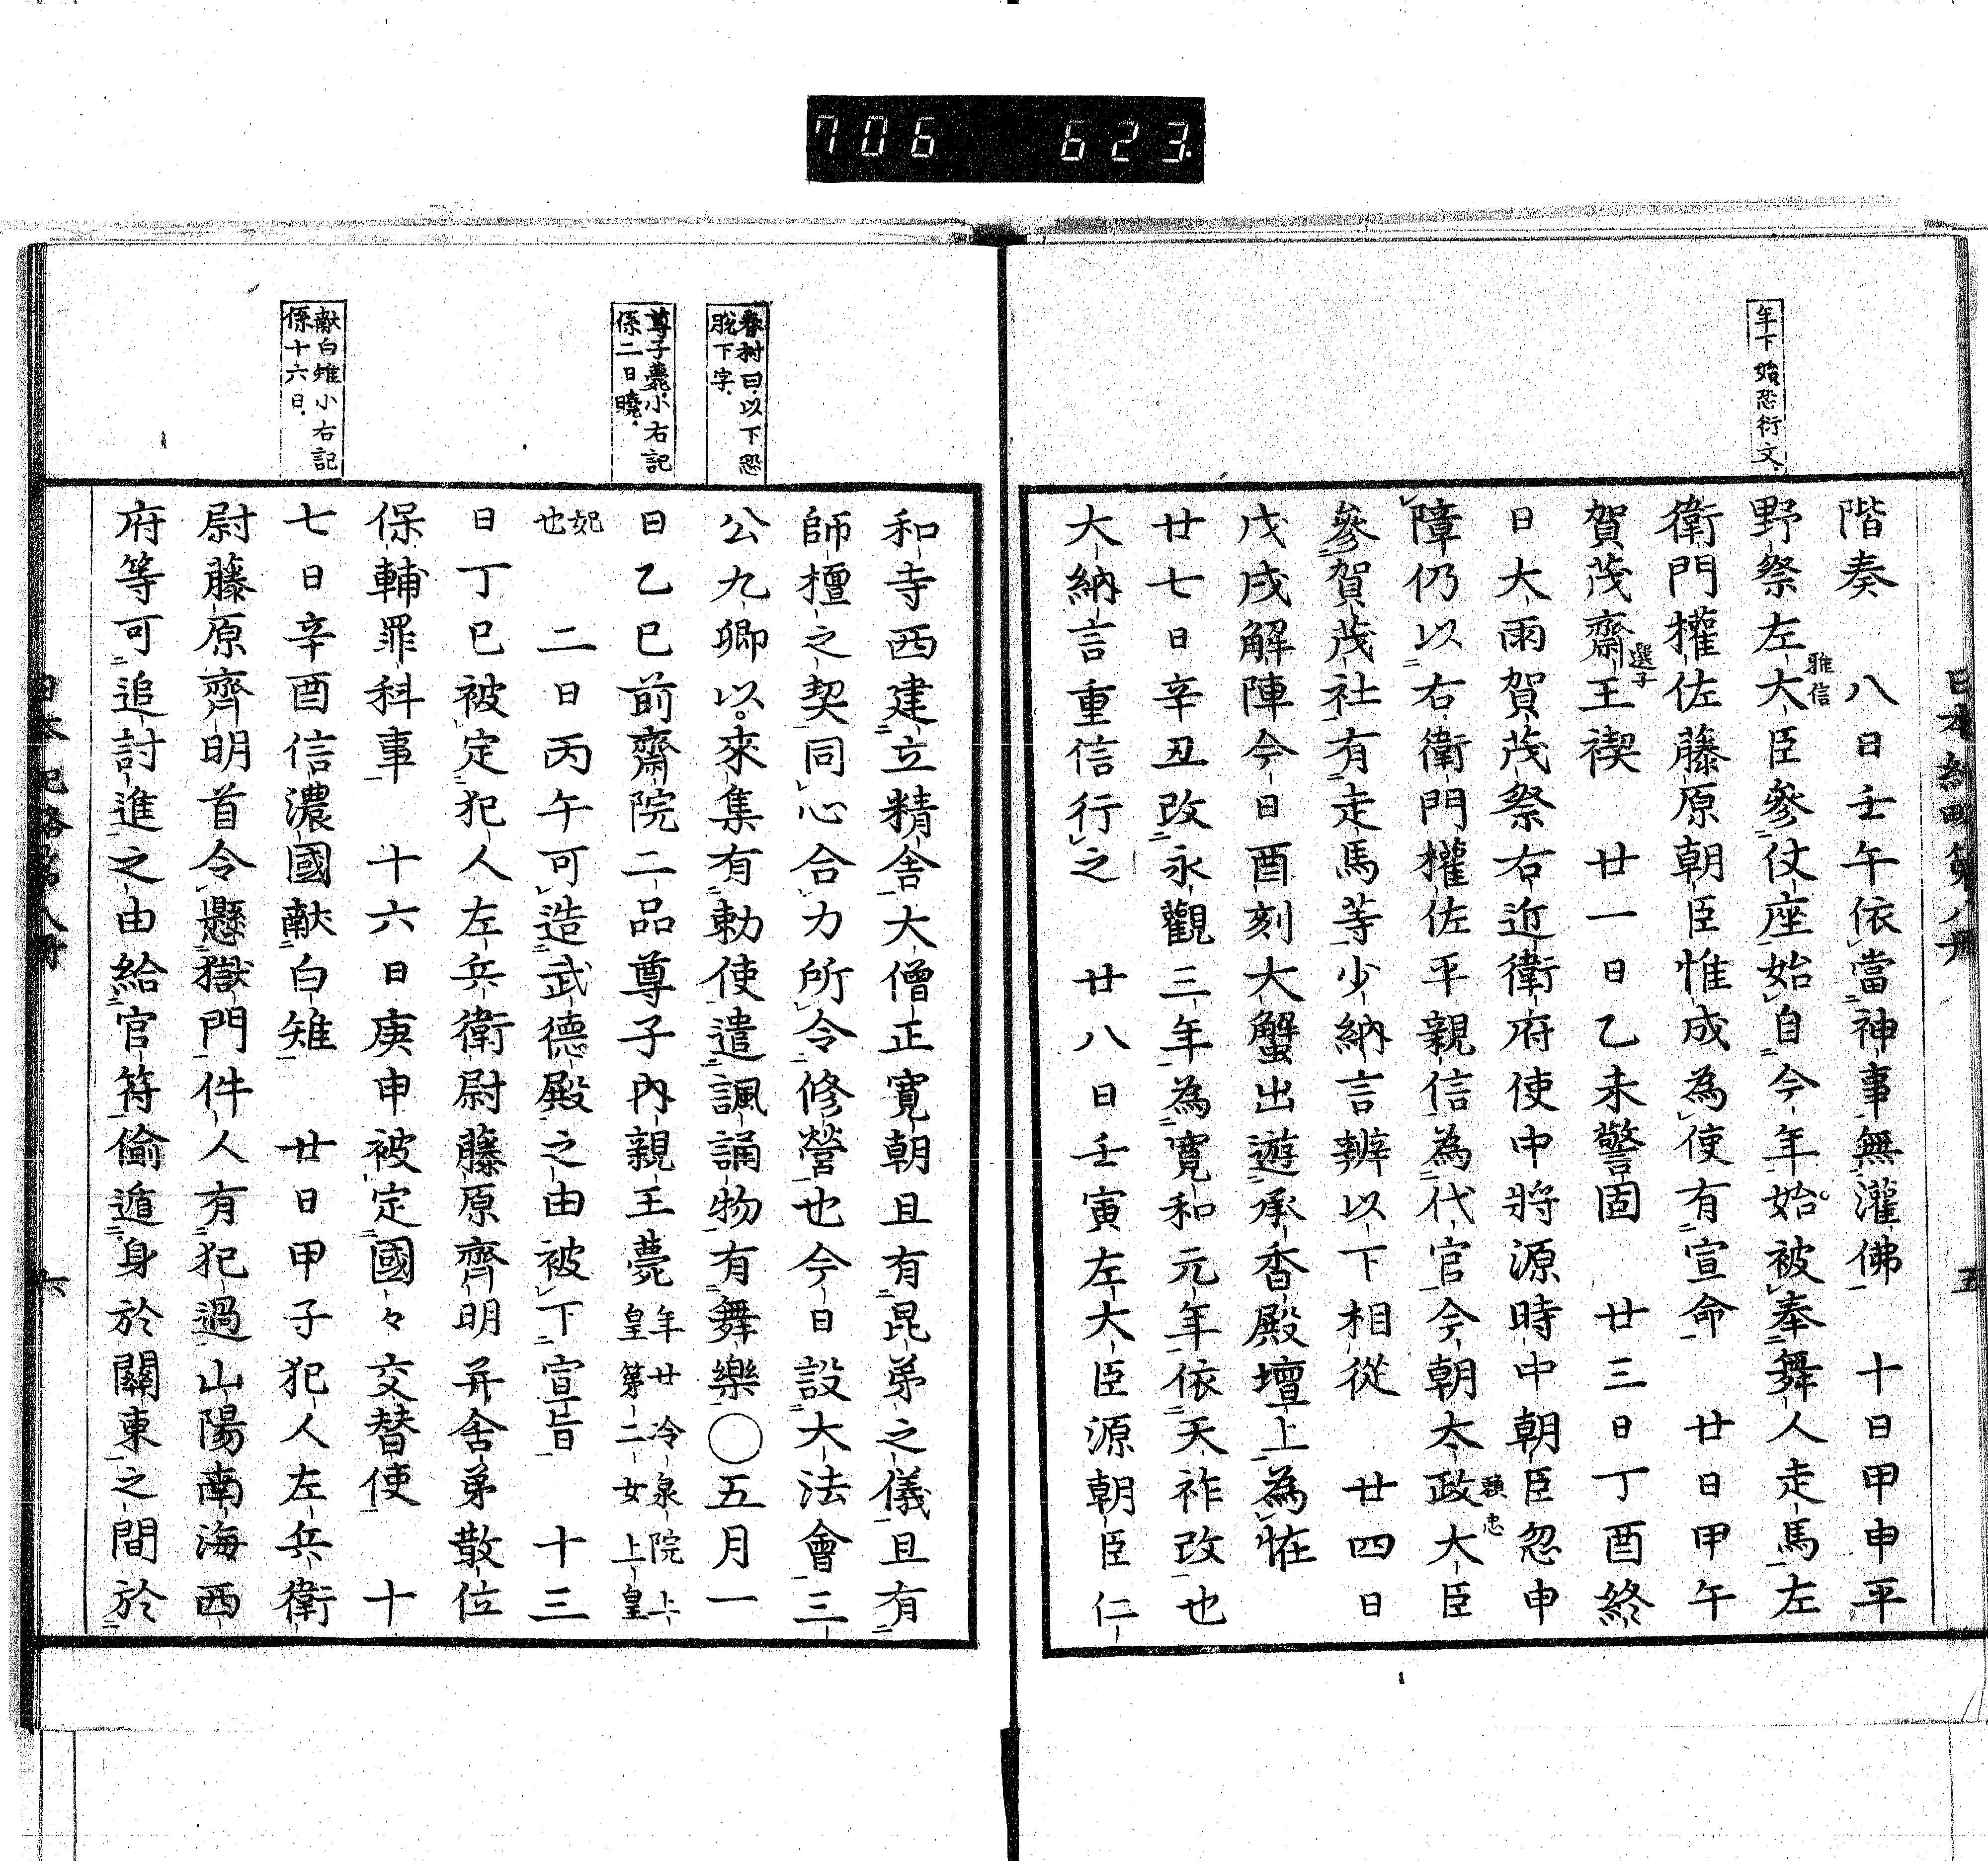 706 623.
日本紀略第八冊
五
年下始恐衍文
階奏 八日壬午依當神事無灌佛 十日甲申平
野祭左大臣參仗座始自今年始被奉舞人走馬左
雅信
衛門權佐藤原朝臣惟成為使有宣命 廿日甲午
賀茂齋王禊 廿一日乙未警固 廿三日丁酉終
選子
日大雨賀茂祭右近衛府使中將源時中朝臣忽申
障仍以右衛門權佐平親信為代官今朝太政大臣
頼忠
參賀茂社有走馬等少納言辨以下相從 廿四日
戊戌解陣今日酉刻大蟹出遊承香殿壇上為恠
廿七日辛丑改永觀三年為寬和元年依天祚改也
大納言重信行之 廿八日壬寅左大臣源朝臣仁
春村曰以下恐
脫下字
尊子薨小右記
係二日曉
献白雉小右記
係十六日
和寺西建立精舍大僧正寬朝且有昆弟之儀且有
師檀之契同心合力所令修營也今日設大法會三
公九卿以來集有勅使遣諷誦物有舞樂○五月一
日乙巳前齋院二品尊子內親王薨年廿冷泉院上皇第二女上皇
妃也 二日丙午可造武德殿之由被下宣旨 十三
日丁巳被定犯人左兵衛尉藤原齊明并舍弟散位
保輔罪科事 十六日庚申被定國々交替使 十
七日辛酉信濃國献白雉 廿日甲子犯人左兵衛
尉藤原齊明首令懸獄門件人有犯過山陽南海西
府等可追討進之由給官符偷遁身於關東之間於
日本紀略第八冊
六